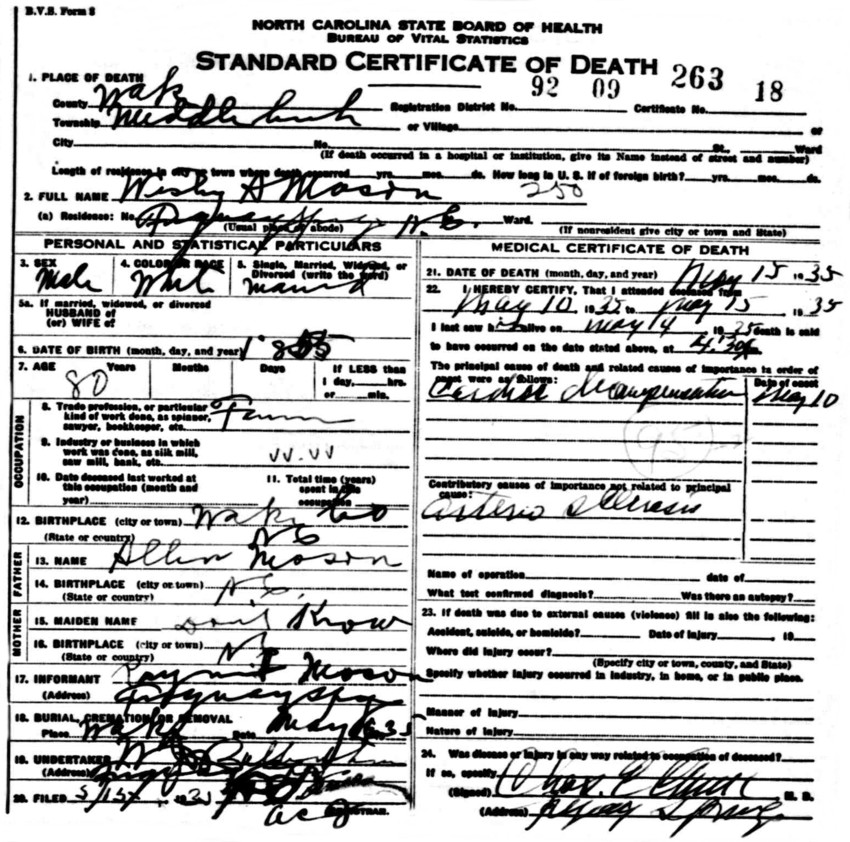 B.V.S. Form 8
NORTH CAROLINA STATE BOARD OF HEALTH
BUREAU OF VITAL STATISTICS
STANDARD CERTIFICATE OF DEATH
92 09 263 18
1. PLACE OF DEATH
County Wake Registration District No. Certificate No.
Township Middle Creek or Village or
City No. St., Ward
(If death occurred in a hospital or institution, give its Name instead of street and number)
Length of residence in city or town where death occurred yrs. mos. ds. How long in U. S. if of foreign birth? yrs. mos. ds.
2. FULL NAME Wesley A Mason 250
(a) Residence: No. Fuquay Springs N.C. Ward.
(Usual place of abode) (If nonresident give city or town and State)
PERSONAL AND STATISTICAL PARTICULARS
3. SEX 4. COLOR OR RACE 5. Single, Married, Widowed, or
Divorced (write the word)
Male White Married
5a. If married, widowed, or divorced
HUSBAND of
(or) WIFE of
6. DATE OF BIRTH (month, day, and year) 1855
7. AGE Years Months Days If LESS than
1 day, hrs.
or min.
80
OCCUPATION
8. Trade profession, or particular
kind of work done, as spinner,
sawyer, bookkeeper, etc.
9. Industry or business in which
work was done, as silk mill,
saw mill, bank, etc.
10. Date deceased last worked at
this occupation (month and
year)
11. Total time (years)
spent in this
occupation
12. BIRTHPLACE (city or town) Wake Co
(State or country) N C
FATHER
13. NAME Allen Mason
14. BIRTHPLACE (city or town) N.C.
(State or country)
MOTHER
15. MAIDEN NAME Don't Know
16. BIRTHPLACE (city or town)
(State or country)
17. INFORMANT Mason
(Address) Fuquay Spgs
18. BURIAL, CREMATION OR REMOVAL
Place Wake Date May 35
19. UNDERTAKER
(Address)
20. FILED 5/15 1935
REGISTRAR.
MEDICAL CERTIFICATE OF DEATH
21. DATE OF DEATH (month, day, and year) May 15 1935
22. I HEREBY CERTIFY, That I attended deceased from
May 10 1935 to May 15 1935
I last saw h alive on May 4 1935 death is said
to have occurred on the date stated above, at 4:30 m.
The principal cause of death and related causes of importance in order of
onset were as follows: Date of onset
Cardiac Decompensation May 10
95
Contributory causes of importance not related to principal
cause:
Arterio sclerosis
Name of operation date of
What test confirmed diagnosis? Was there an autopsy?
23. If death was due to external causes (violence) fill in also the following:
Accident, suicide, or homicide? Date of injury 19
Where did injury occur?
(Specify city or town, county, and State)
Specify whether injury occurred in industry, in home, or in public place.
Manner of Injury
Nature of Injury
24. Was disease or injury in any way related to occupation of deceased?
If so, specify
(Signed) Chas. M. D.
(Address) Fuquay Springs